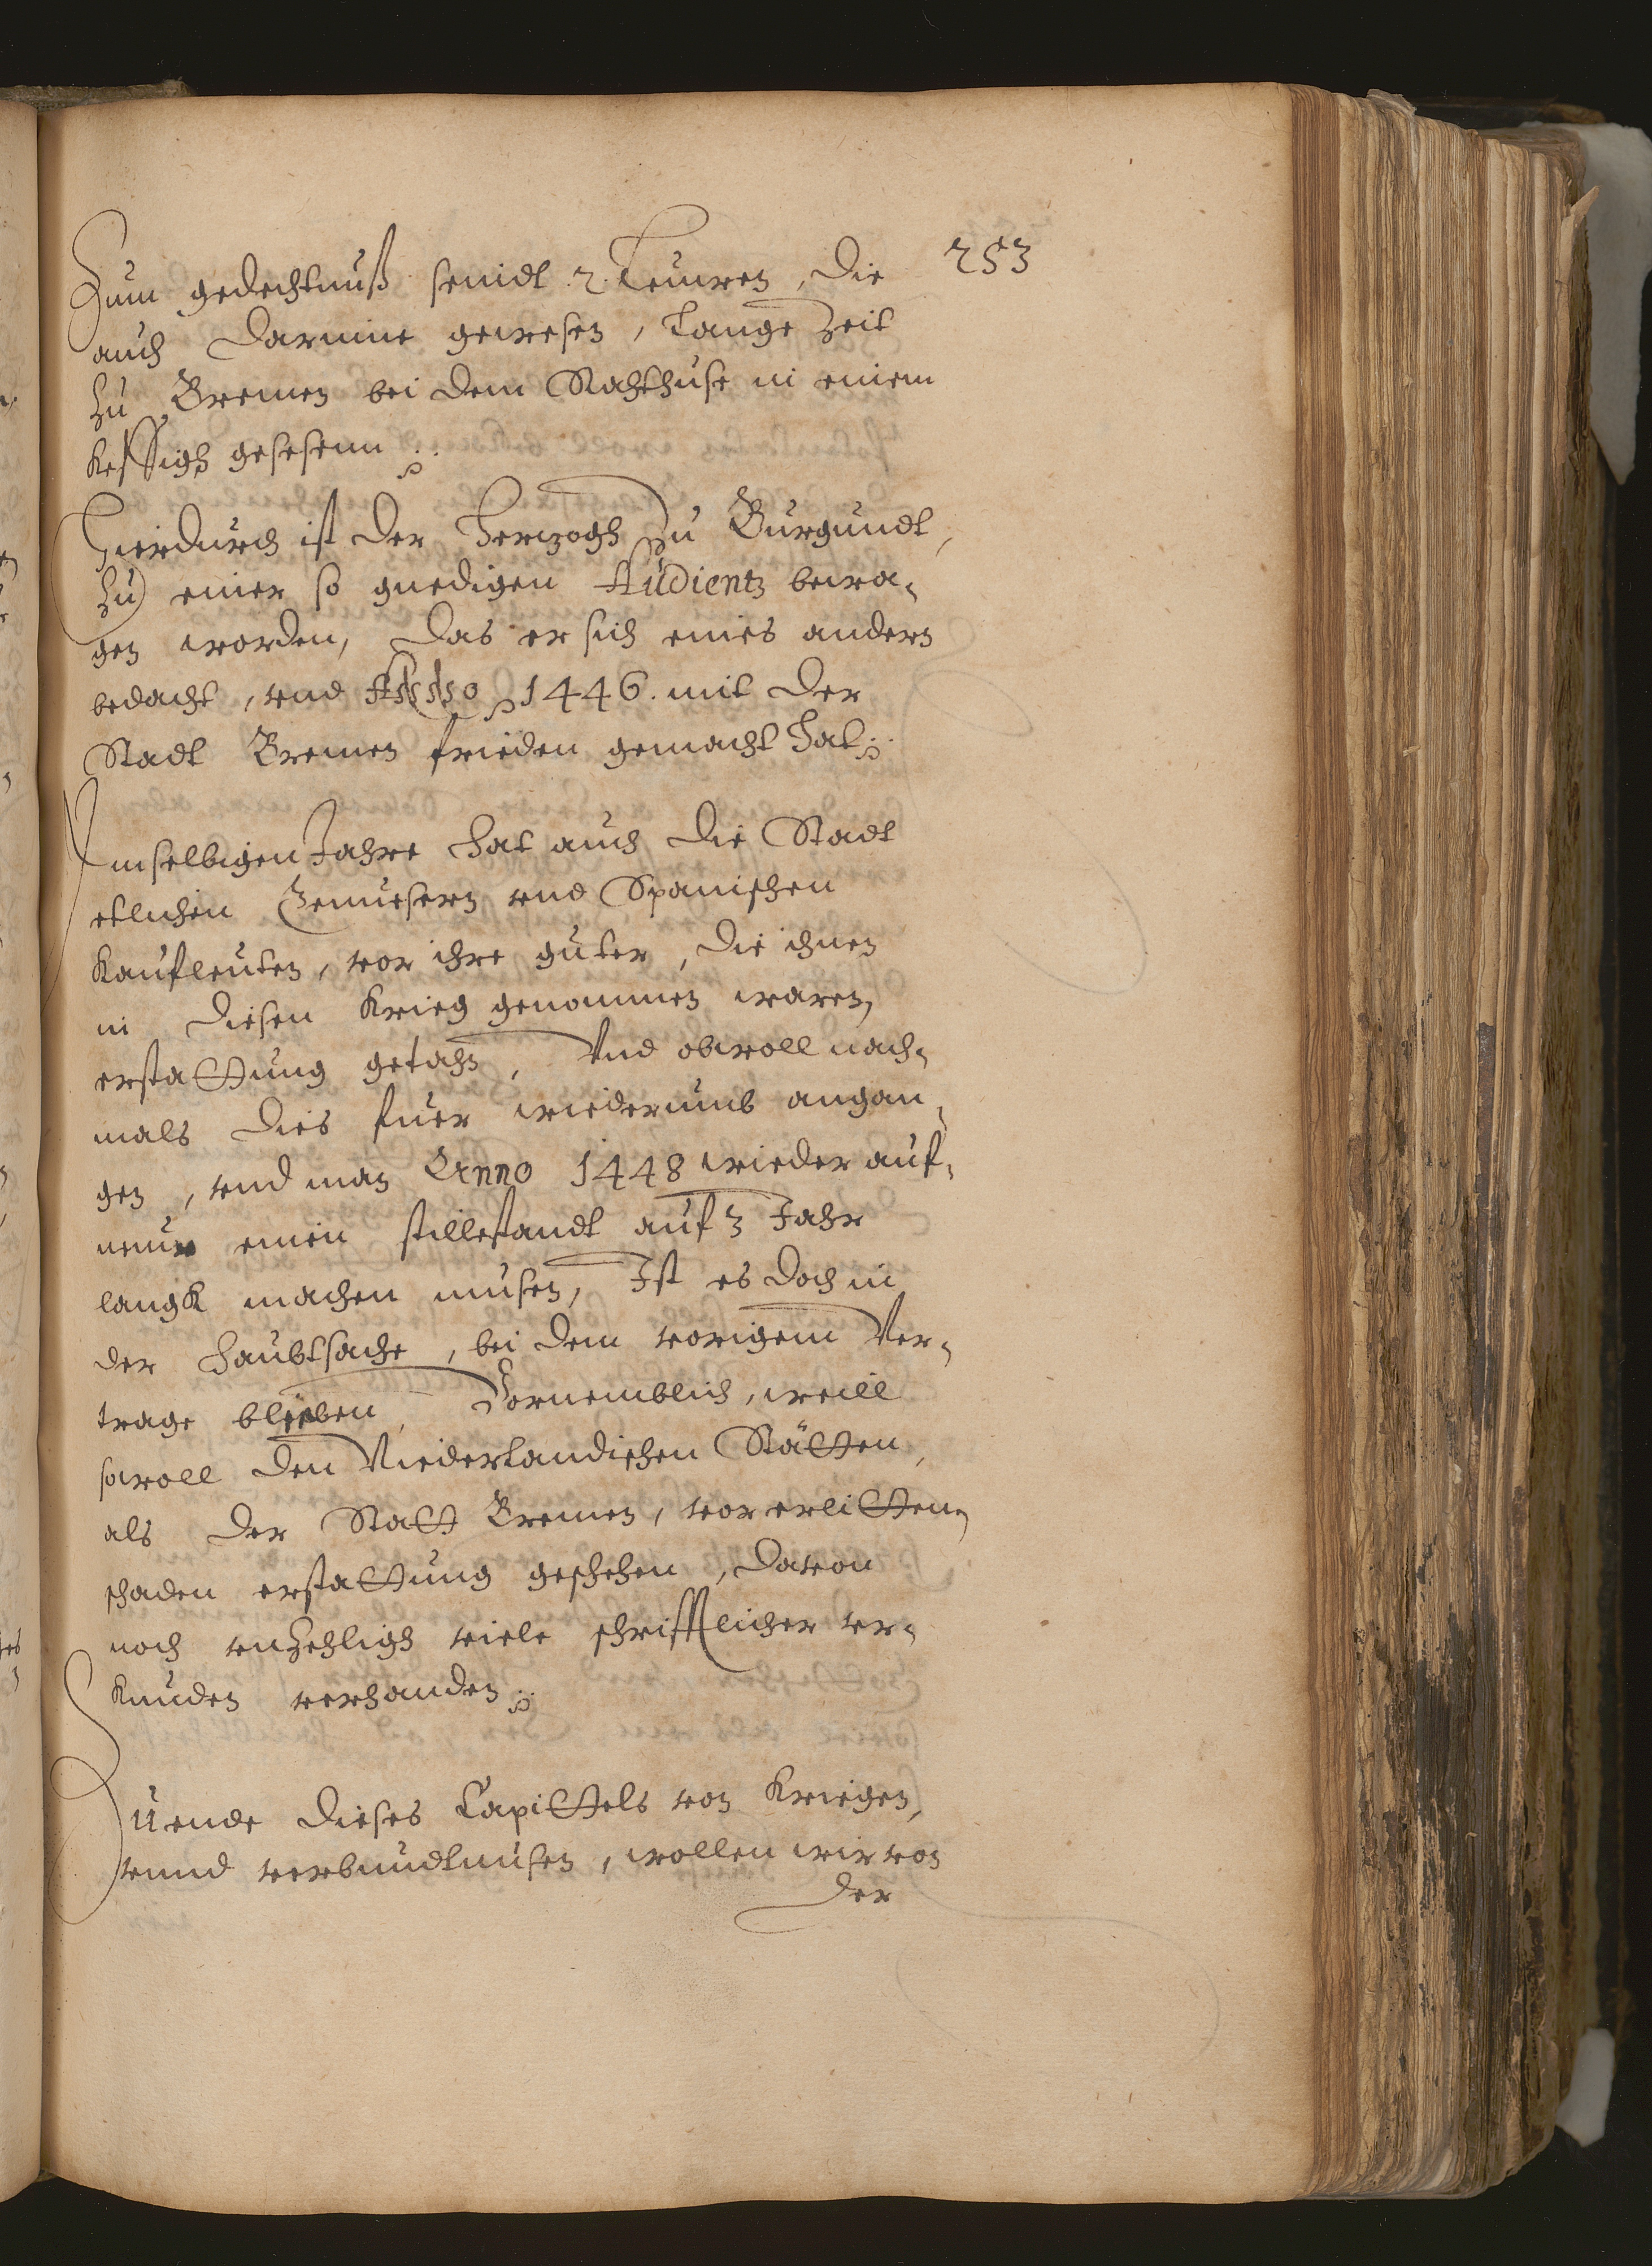 253
Zum gedechtnuß seindt 2. Leuwen, die
auch darinne gewesen, lange Zeit
zu Bremen bei dem Rahthuse in einem
keffigh gesesenn
Hierdurch ist der Hertzogh zu Burgundt,
zu einer so gnedigen Audientz bewo-
gen worden, das er sich eines andern
bedacht, vnd Anno 1446. mit der
Stadt Bremen frieden gemacht hat
Imselbigen Jahre hat auch die Stadt
etlichen Genuesern vnd Spanischen
Kaufleuten, vor ihre guter, die ihnen
in diesen Krieg genommen waren,
erstattung gethan, Vnd obwoll nach-
mals dies fuer wiederumb angan-
gen, vnd man Anno 1448 wieder auf-
neuw einen stillestandt auf 3 Jahr
langk machen musen, Ist es doch in
der haubtsache, bei dem vorigem Ver-
trage blieben, Vornemblich, weill
sowoll den Niederlandischen Stätten,
als der Statt Bremen, vor erlitten
schaden erstattung geschehen, davon
noch vnzehligh viele schrifftlicher vr-
kunden verhanden
Zu ende dieses Capittels von Kriegen,
vnnd verbundtnusen, wollen wir von
der